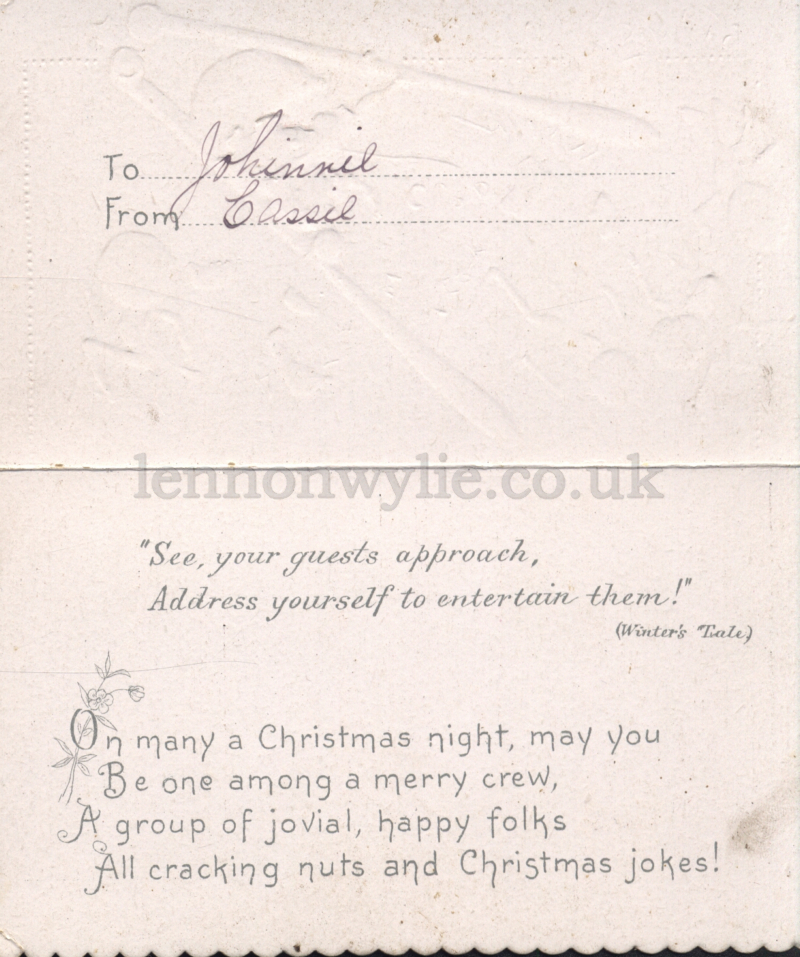 To Johinnie
From Cassie
lennonwylie.co.uk
"See, your guests approach,
Address yourself to entertain them!"
(Winter's Tale)
On many a Christmas night, may you
Be one among a merry crew,
A group of jovial, happy folks
All cracking nuts and Christmas jokes!